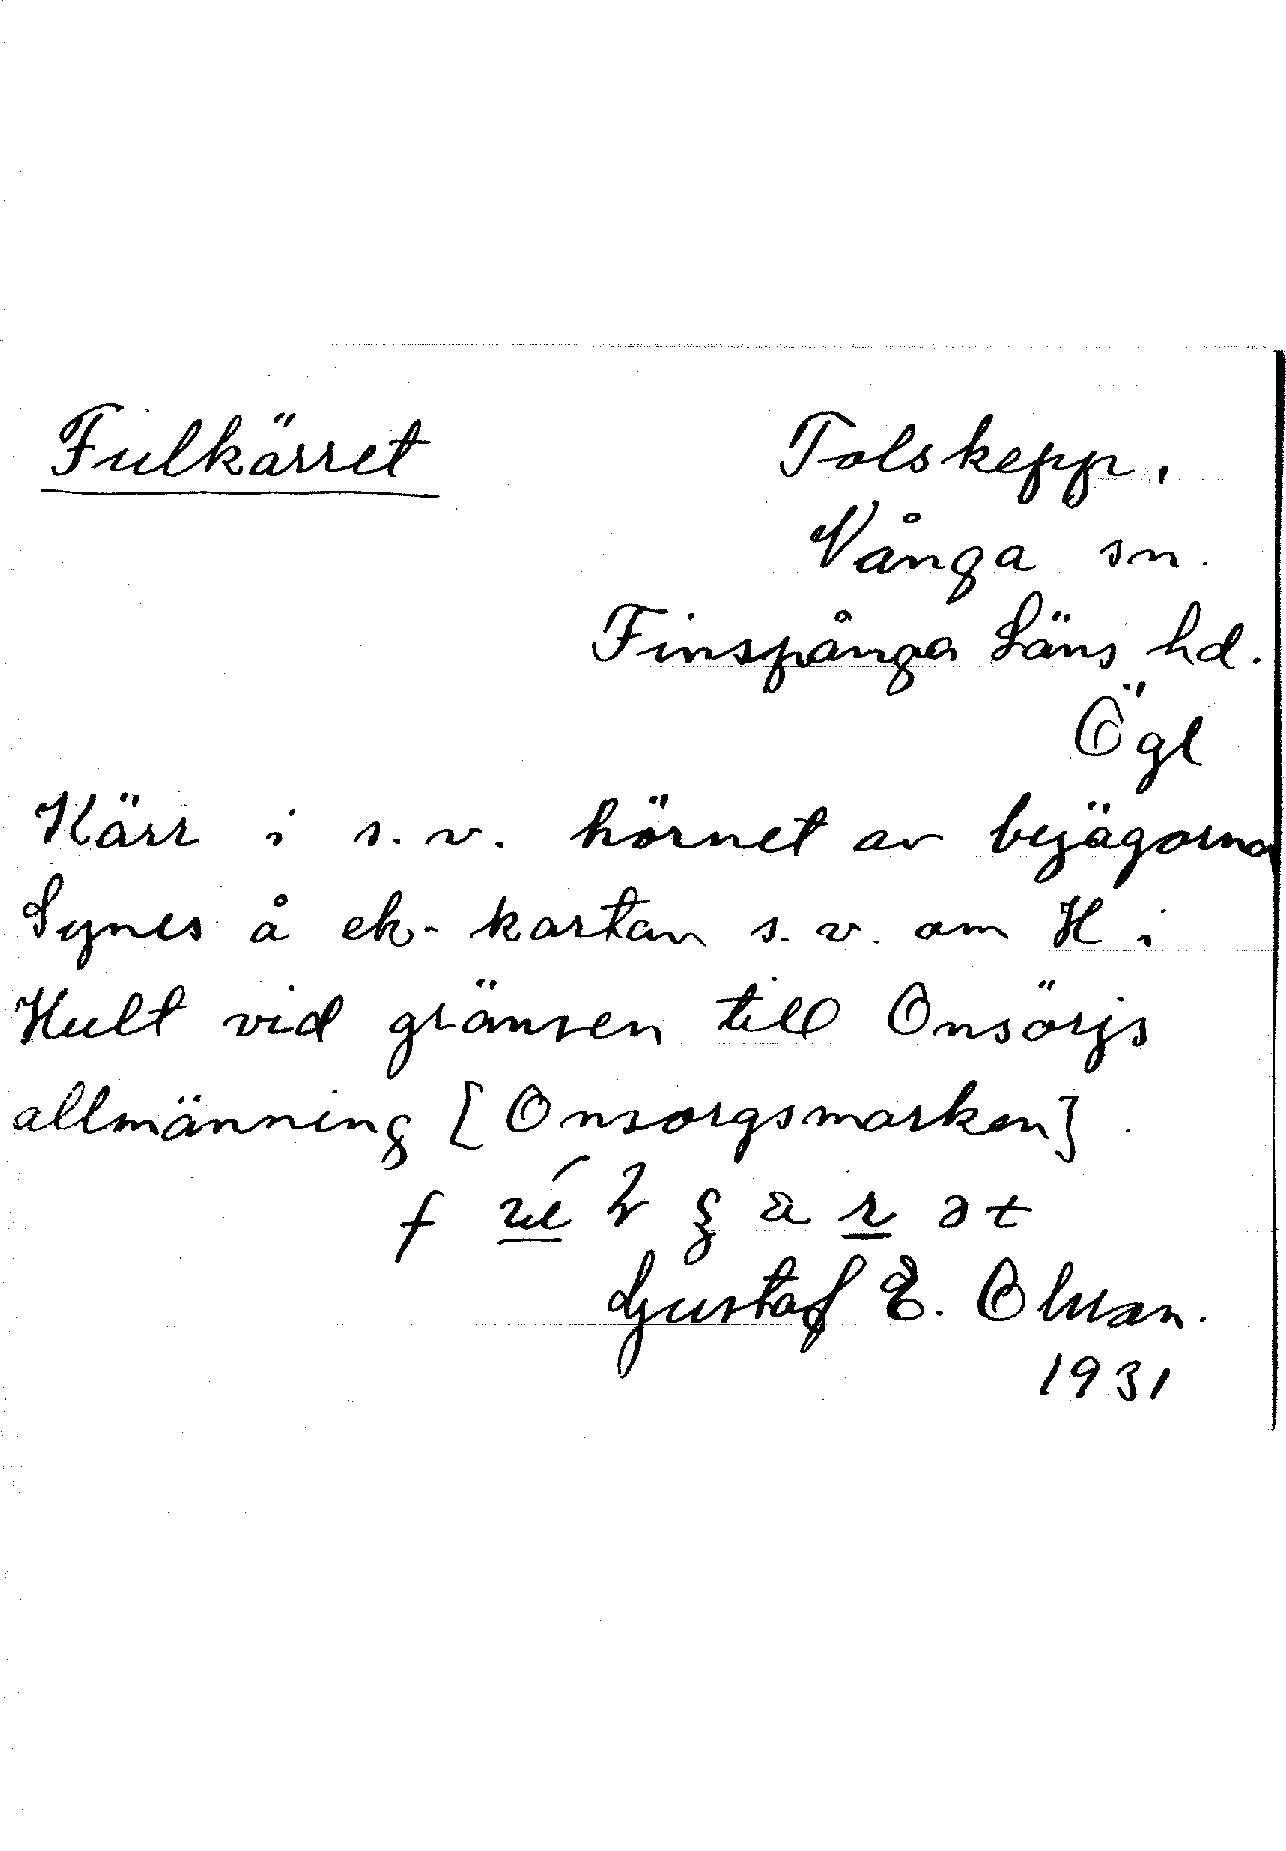 Fulkärret
Tolskepp.
Vånga sn.
Finspånga Läns hd.
Ögl
Kärr i s.v. hörnet av byägorna
Synes å ek-kartan s.v. om H i
Hult vid gränsen till Onsörjs
allmänning [Onsorgsmarken].
Gustaf E. Olsson.
1931